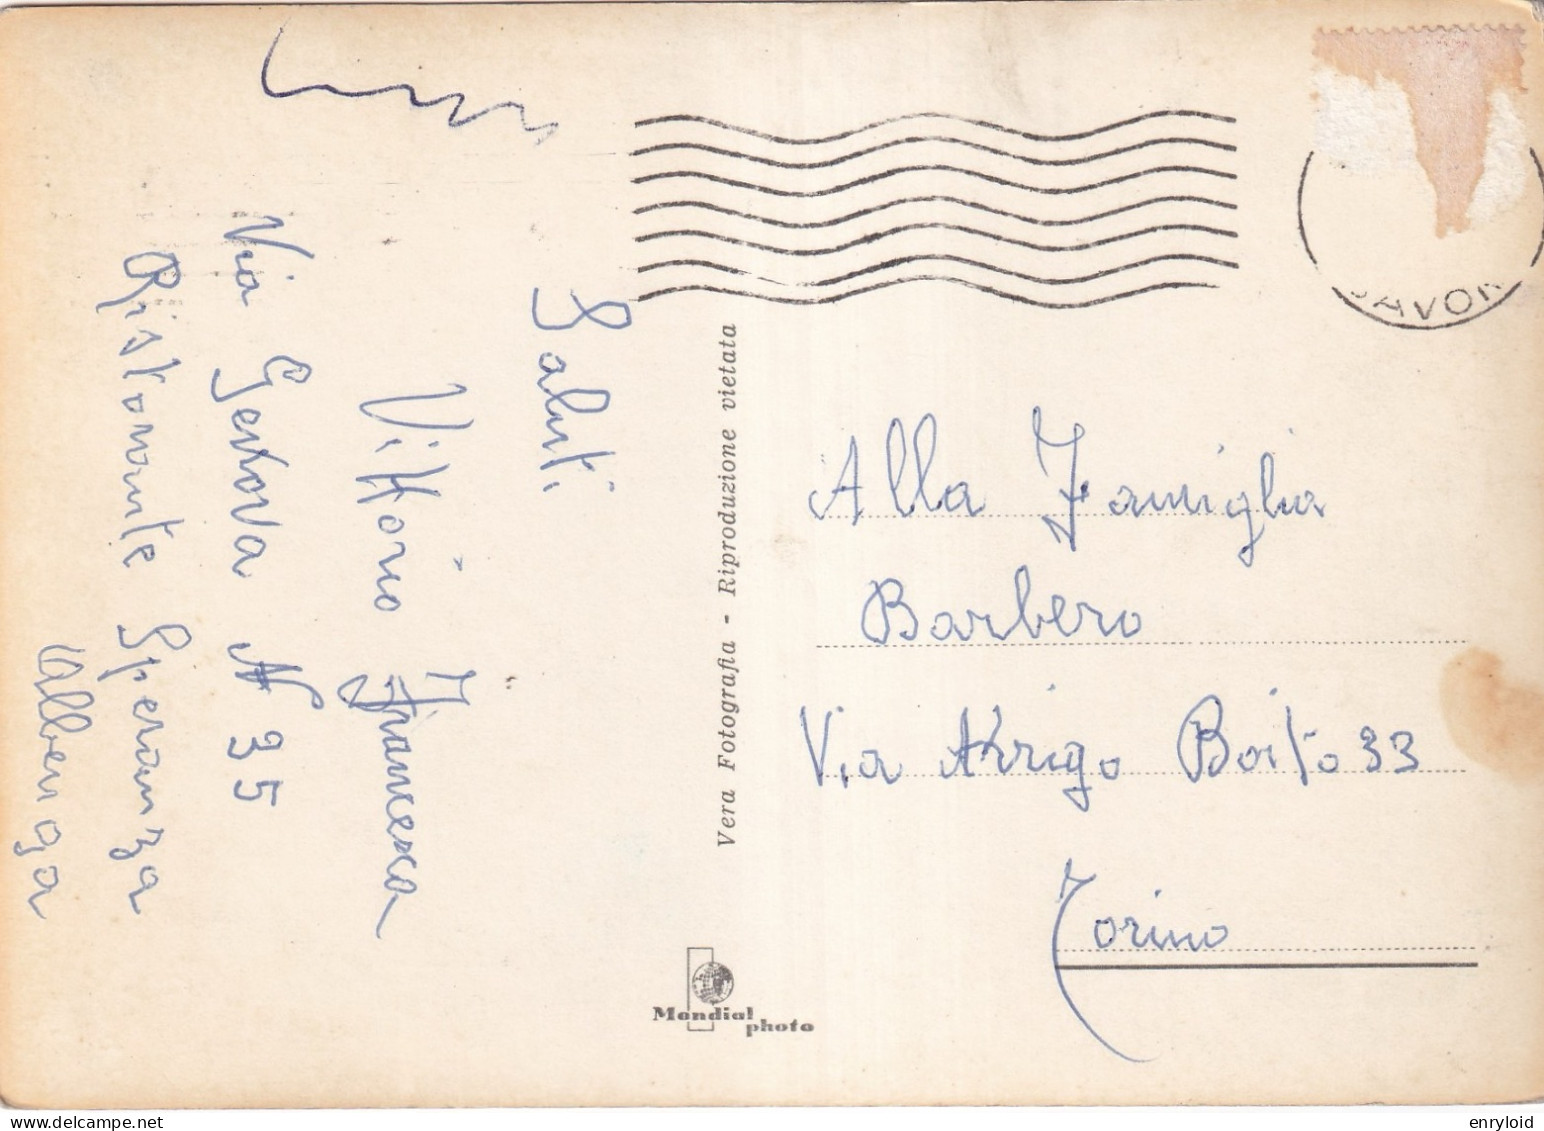 Saluti
Vittorio Francesca
Via Genova N 35
Ristorante Speranza
Albenga
Vera Fotografia - Riproduzione vietata
Mondial
photo
SAVON
Alla Famiglia
Barbero
Via Arrigo Boito 33
Torino
www.delcampe.net
enryloid